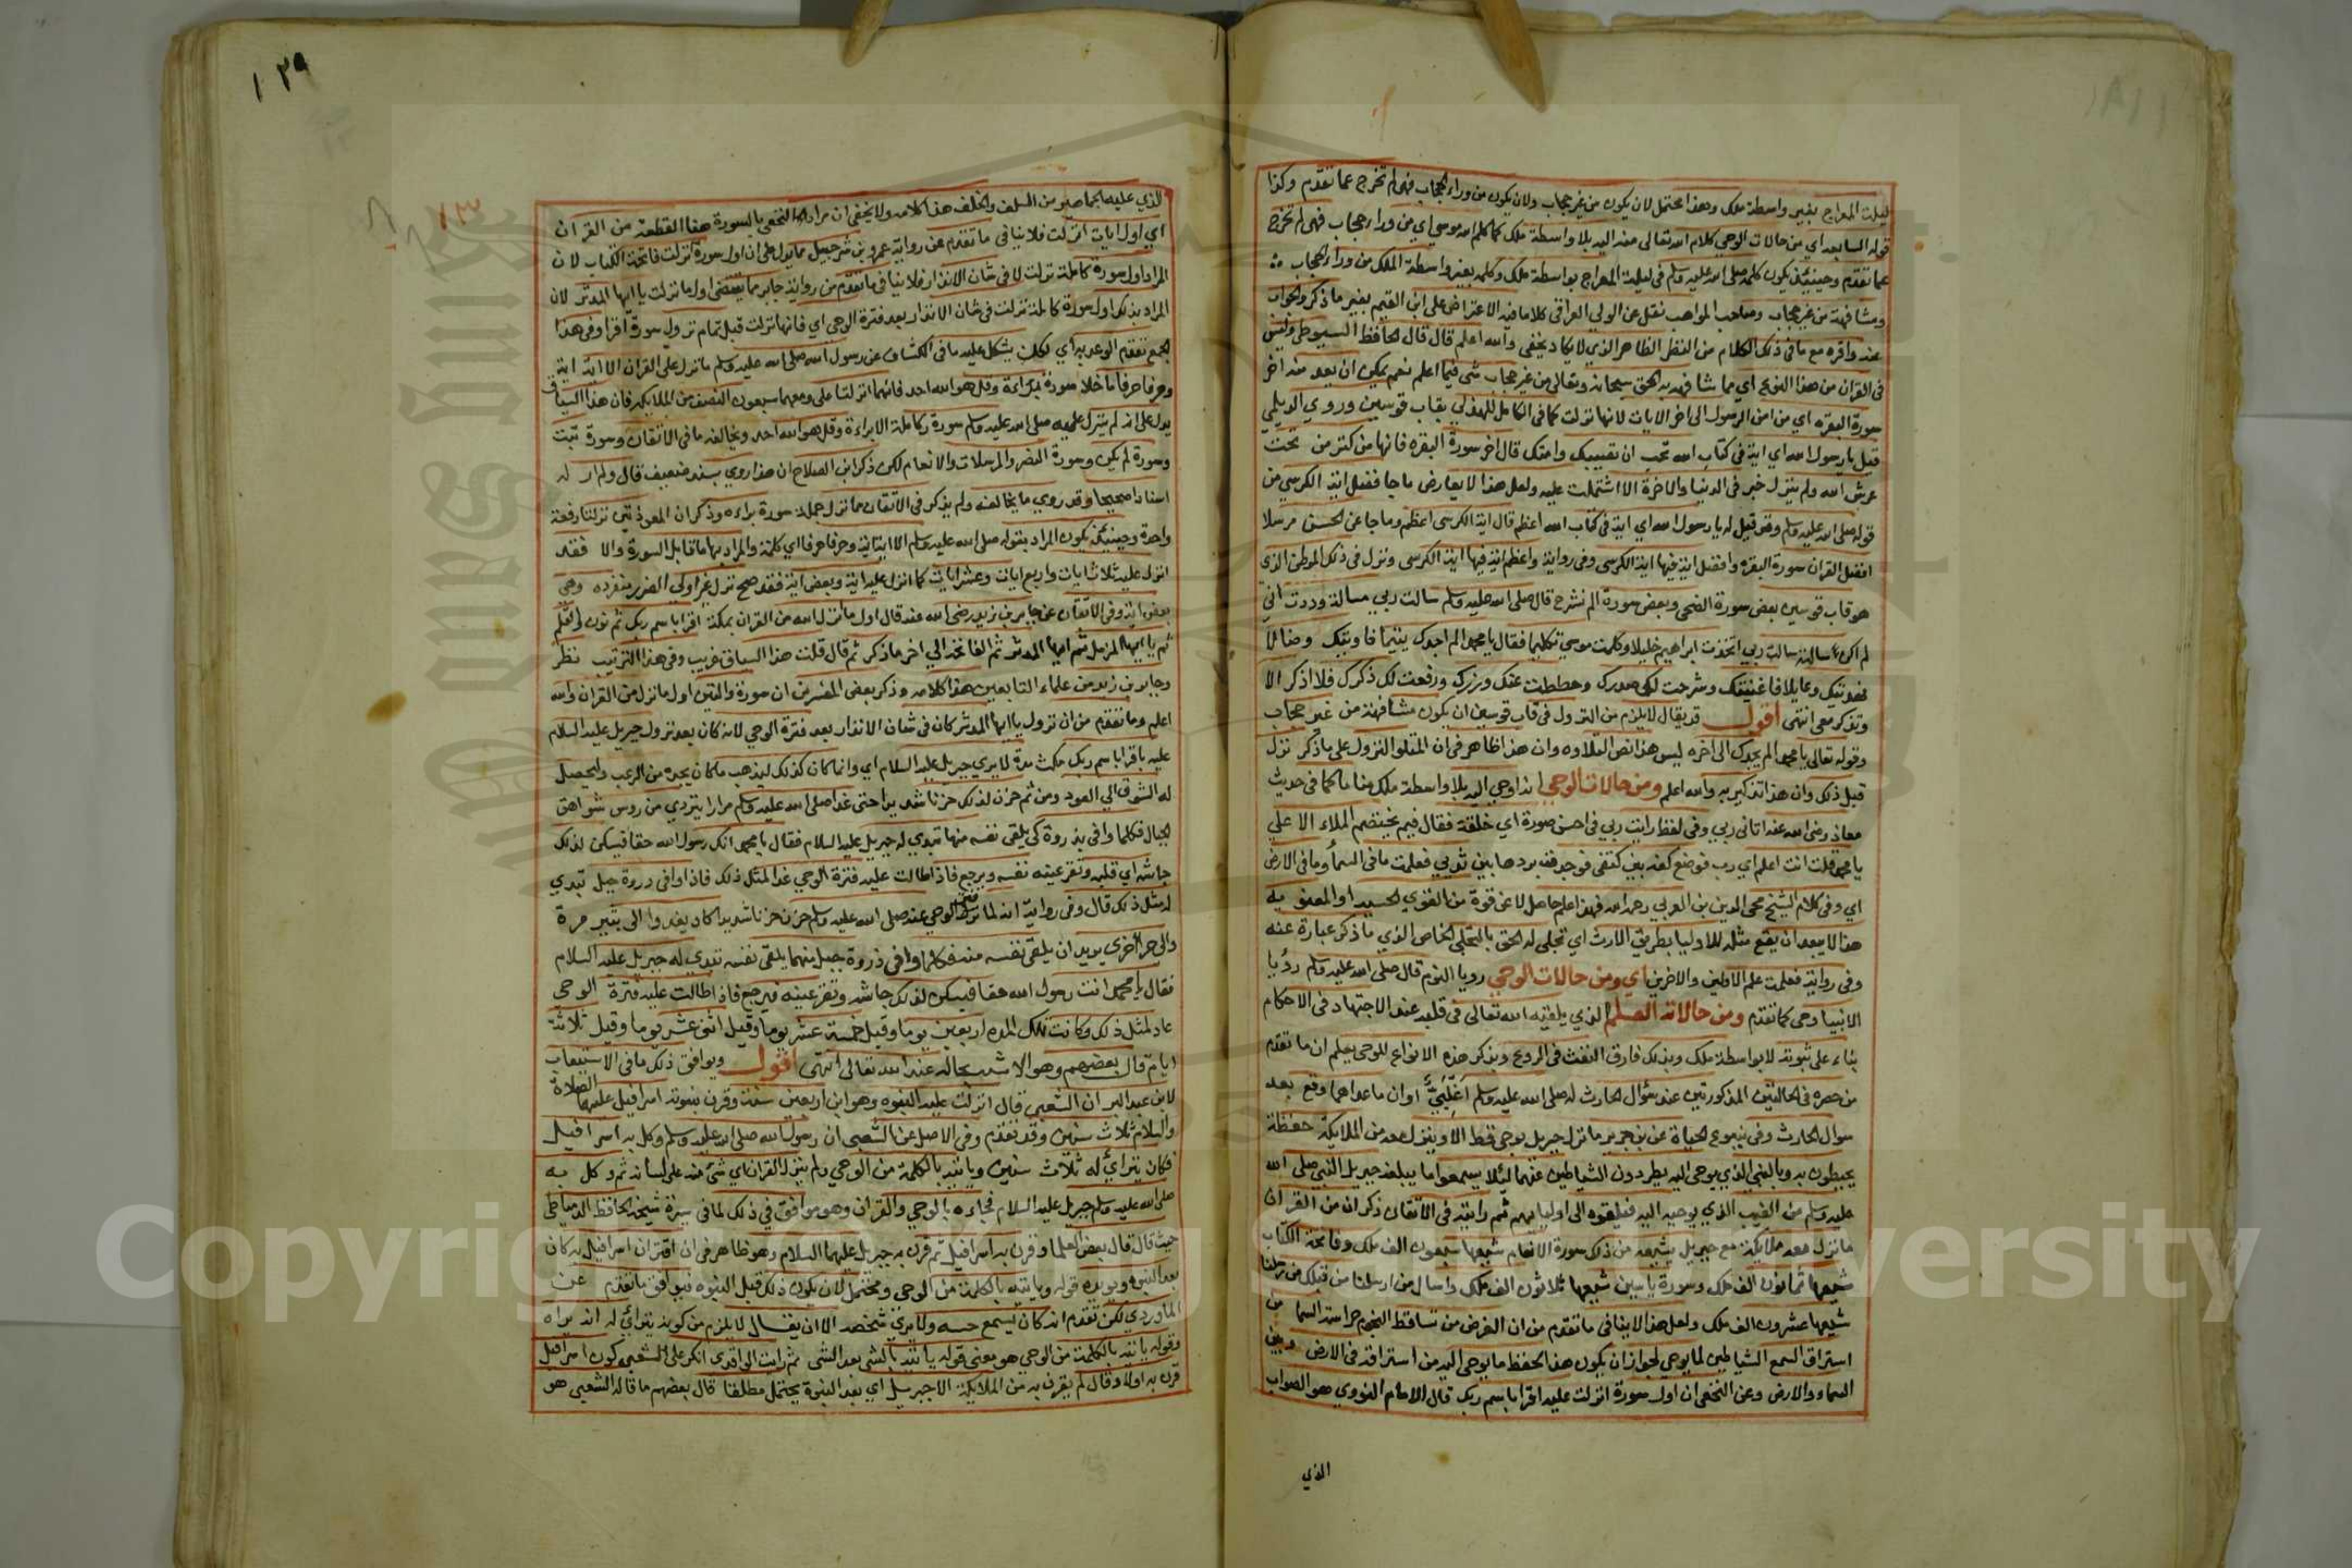 ليلة المعراج بغير واسطة ملك وهذا يحتمل لان يكون من غير حجاب ولان يكون من وراء الحجاب فهى لم تخرج عما تقدم وكذا
قوله السابعة اي من حالات الوحي كلام الله تعالى منه اليه بلا واسطة ملك كما كلم الله موسى اي من وراء حجاب فهى لم تخرج
عما تقدم وحينئذ يكون كلمه صلى الله عليه وسلم في ليلة المعراج بواسطة ملك وكلمه بغير واسطة الملك من وراء الحجاب
ومشافهة من غير حجاب وصاحب المواهب نقل عن الولي العراقي كلاما فيه الاعتراض على ابن القيم بغير ما ذكر والجواب
عنه واقره مع ما في ذلك الكلام من النظر الظاهر الذي لا يكاد يخفى والله اعلم قال قال الحافظ السيوطي وليس
في القران من هذا النوع اي مما شافهه به الحق سبحانه وتعالى من غير حجاب شى فيما اعلم نعم يمكن ان يعد منه اخر
سورة البقره اي من امن الرسول الى اخر الايات لانها نزلت كما في الكامل للهذلي بقاب قوسين وروي الديلمي
قيل يا رسول الله اي اية في كتاب الله تحب ان تصيبك وامتك قال اخر سورة البقره فانها من كنز من تحت
عرش الله ولم يترك خير في الدنيا والاخرة الا اشتملت عليه ولعل هذا لا يعارض ما جا فضل اية الكرسي من
قوله صلى الله عليه وسلم وقد قيل له يا رسول الله اي اية في كتاب الله اعظم قال اية الكرسى اعظم وما جا عن الحسن مرسلا
افضل القران سورة البقره وافضل اية فيها اية الكرسى وفي رواية واعظم اية فيها اية الكرسى ونزل في ذلك الموطن الذي
هو قاب قوسين بعض سورة الضحى وبعض سورة الم نشرح قال صلى الله عليه وسلم سالت ربي مسالة وددت اني
لم اكن سالته سالت ربي اتخذت ابراهيم خليلا وكلمت موسى تكليما فقال يا محمد الم اجدك يتيما فاويتك وضالا
فهديتك وعايلا فاغنيتك وشرحت لك صدرك وحططت عنك وزرك ورفعت لك ذكرك فلا اذكر الا
وتذكر معى انتهى اقول قد يقال لا يلزم من النزول في قاب قوسين ان يكون مشافهة من غير حجاب
وقوله تعالى يا محمد الم يجدك الى اخره ليس هذا نص التلاوه وان هذا ظاهر في ان المتلو النزول على ما ذكر نزل
قبل ذلك وان هذا تذكير به والله اعلم ومن حالات الوحي انه اوحي اليه بلا واسطة ملك مناما كما في حديث
معاذ رضى الله عنه اتاني ربي وفي لفظ رايت ربي في احسن صورة اي خلقة فقال فيم يختصم الملاء الاعلي
يا محمد قلت انت اعلم اي رب فوضع كفه بين كتفى فوجدت بردها بين ثديي فعلمت ما في السماء وما في الارض
اي وفي كلام الشيخ محى الدين بن العربي رحمه الله فهذا علم حاصل لا عن قوة من القوي الحسيه او المعنويه
هذا لا يبعد ان يقع مثله للاوليا بطريق الارث اي تجلى له الحق بالتجلي الخاص الذي ما ذكر عبارة عنه
وفي رواية فعلمت علم الاولين والاخرين اي ومن حالات الوحي رويا النوم قال صلى الله عليه وسلم رؤيا
الانبيا وحى كما تقدم ومن حالاته العلم الذي يلقيه الله تعالى في قلبه عند الاجتهاد في الاحكام
بناء على ثبوته لا بواسطة ملك وبذلك فارق النفث في الروع وبذكر هذه الانواع للوحى يعلم ان ما تقدم
من حصره في الحالتين المذكورتين عند سؤال الحارث له صلى الله عليه وسلم اغلبيّ او ان ما عداهما وقع بعد
سوال الحارث وفي ينبوع الحياة عن بن جرير ما نزل جبريل بوحي قط الا وينزل معه من الملايكة حفظة
يحيطون به وبالنبي الذي يوحى اليه يطردون الشياطين عنهما ليلا يسمعوا ما يبلغه جبريل النبي صلى الله
عليه وسلم من الغيب الذي يوحيه اليه فيلقوه الى اوليايهم ثم رايته في الاتقان ذكر ان من القران
ما نزل معه ملايكة مع جبريل يشيعه من ذلك سورة الانعام شيعها سبعون الف ملك وفاتحة الكتاب
شيعها ثمانون الف ملك وسورة ياسين شيعها ثلاثون الف ملك واسال من ارسلنا من قبلك من رسلنا
شيعها عشرون الف ملك ولعل هذا لا ينافي ما تقدم من ان الغرض من تساقط النجوم حراسة السما من
استراق السمع الشياطين لما يوحي لجواز ان يكون هذا الحفظ ما يوحي اليه من استراقه في الارض وبين
السماء والارض وعن النخعي ان اول سورة انزلت عليه اقرا باسم ربك قال الامام النووي هو الصواب
الذي
١٢٩
١٣
الذي عليه الجماهير من السلف والخلف هذا كلامه ولا يخفى ان مراد النخعي بالسورة هنا القطعة من القران
اي اول ايات انزلت فلا ينافي ما تقدم عن رواية عمرو بن شرحبيل مما يدل على ان اول سورة نزلت فاتحة الكتاب لان
المراد اول سورة كاملة نزلت لا في شان الانذار فلا ينافي ما تقدم من رواية جابر مما يقتضى اول ما نزلت يا ايها المدثر لان
المراد بذلك اول سورة كاملة نزلت في شان الانذار بعد فترة الوحي اي فانها نزلت قبل تمام نزول سورة اقرا وفي هذا
الجمع تقدم الوعد به اي لكن يشكل عليه ما في الكشاف عن رسول الله صلى الله عليه وسلم ما نزل علي القران الا اية اية
وحرفا حرفا ما خلا سورة براءة وقل هو الله احد فانهما انزلتا على ومعهما سبعون الف صف من الملايكة فان هذا السياق
يدل على انه لم ينزل عليه صلى الله عليه وسلم سورة كاملة الا براءة وقل هو الله احد ويخالفه ما في الاتقان وسورة تبت
وسورة لم يكن وسورة النصر والمرسلات والانعام لكن ذكر ابن الصلاح ان هذا روي بسند ضعيف قال ولم ار له
اسنادا صحيحا وقد روي ما يخالفه ولم يذكر في الاتقان مما نزل جملة سورة براءه وذكر ان المعوذتين نزلتا دفعة
واحدة وحينئذ يكون المراد بقوله صلى الله عليه وسلم الا اية اية وحرفا حرفا اي كلمة والمراد بها ما قابل السورة والا فقد
انزل عليه ثلاث ايات واربع ايات وعشر ايات كما انزل عليه اية وبعض اية فقد صح نزل غير اولي الضرر منفرده وهي
بعض اية وفي الاتقان عن جابر بن زيد رضى الله عنه قال اول ما نزل الله من القران بمكة اقرا باسم ربك ثم نون والقلم
ثم يا ايها المزمل ثم يا ايها المدثر ثم الفاتحة الي اخر ما ذكر ثم قال قلت هذا السياق غريب وفي هذا الترتيب نظر
وجابر بن زيد من علماء التابعين هذا كلامه وذكر بعض المفسرين ان سورة والتين اول ما نزل من القران والله
اعلم وما تقدم من ان نزول يا ايها المدثر كان في شان الانذار بعد فترة الوحي لانه كان بعد نزول جبريل عليه السلام
عليه باقرا باسم ربك مكث مدة لا يري جبريل عليه السلام اي وانما كان كذلك ليذهب ما كان يجده من الرعب وليحصل
له الشوق الي العود ومن ثم حزن لذلك حزنا شديدا حتى غدا صلى الله عليه وسلم مرارا يتردي من روس شواهق
الجبال فكلما وافى بذروة كى يلقى نفسه منها تبدي له جبريل عليه السلام فقال يا محمد انك رسول الله حقا فيسكن لذلك
جاشه اي قلبه وتقر عينه نفسه ويرجع فاذا طالت عليه فترة الوحي غدا لمثل ذلك فاذا وافى ذروة جبل تبدي
له مثل ذلك قال وفي رواية انه لما فتر الوحي عنه صلى الله عليه وسلم حزن حزنا شديدا كاد يغدوا الى ثبير مرة
والى حرا اخرى يريد ان يلقى نفسه منه فكلما وافى ذروة جبل منهما يلقى نفسه تبدي له جبريل عليه السلام
فقال يا محمد انت رسول الله حقا فيسكن لذلك جاشه وتقر عينه فيرجع فاذا طالت عليه فترة الوحى
عاد لمثل ذلك وكانت تلك المده اربعين يوما وقيل خمسة عشر يوما وقيل اثنى عشر يوما وقيل ثلاثة
ايام قال بعضهم وهو الاشبه بحاله عند الله تعالى انتهى اقول ويوافق ذلك ما في الاستيعاب
لابن عبد البر ان الشعبي قال انزلت عليه النبوه وهو ابن اربعين سنة وقرن بنبوته اسرافيل عليهما الصلاة
والسلام ثلاث سنين وقد تقدم وفي الاصل عن الشعبي ان رسول الله صلى الله عليه وسلم وكل به اسرافيل
فكان يتراي له ثلاث سنين وياتيه بالكلمة من الوحي ولم ينزل القران اي شئ منه على لسانه ثم وكل به
صلى الله عليه وسلم جبريل عليه السلام فجاءه بالوحي والقران وهو موافق في ذلك لما في سيرة شيخه الحافظ الدمياطي
حيث قال قال بعض العلما وقرن به اسرافيل ثم قرن به جبريل عليهما السلام وهو ظاهر في ان اقتران اسرافيل به كان
بعد النبوه ويويده قوله وياتيه بالكلمة من الوحي ويحتمل لان يكون ذلك قبل النبوه فيوافق ما تقدم عن
الماوردي لكن تقدم انه كان يسمع حسه ولا يري شخصه الا ان يقال لا يلزم من كونه يتراي له انه يراه
وقوله ياتيه بالكلمة من الوحي هو معنى قوله ياتيه بالشى بعد الشى ثم رايت الواقدي انكر على الشعبي كون اسرافيل
قرن به اولا وقال لم يقرن به من الملايكة الا جبريل اي بعد النبوة يحتمل مطلقا قال بعضهم ما قاله الشعبي هو
Copyright © King Saud University